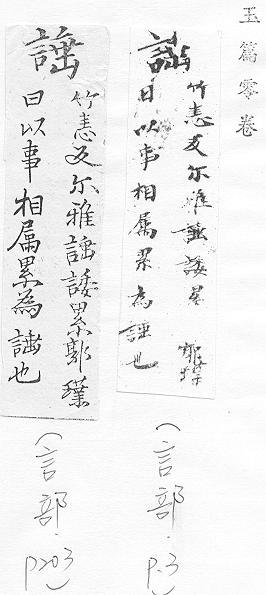 玉篇零卷
諈
竹恚反尔雅諈諉累郭璞
曰以事相属累為諈也
(言部.P.3)
諈
竹恚反尔雅諈諉累郭璞
曰以事相属累為諈也
(言部.P203)